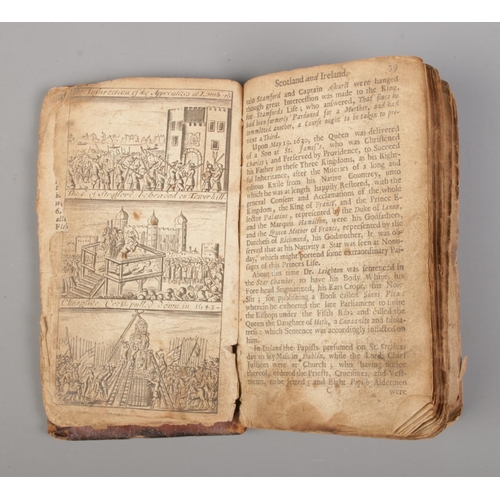 The Insurrection of the Apprentices at Lambeth
Tho. E of Strafford beheaded on Towerhill
Cheapside Cross pulled down in 1643.
Scotland and Ireland. 39
tain Stamford and Captain Ashurst were hanged
though great Intercession was made to the King,
for Stamfords Life; who answered, That since he
had been formerly Pardoned for a Murther, and had
committed another, a Course ought to be taken to pre-
vent a Third.
Upon May 19. 1630, the Queen was delivered
of a Son at St. James's, who was Christened
Charles; and Preserved by Providence, to Succeed
his Father in these Three Kingdoms, as his Right-
ful Inheritance, after the Miseries of a long and
tedious Exile from his Native Countrey, unto
which he was at length happily Restored, with the
general Consent and Acclamations of the whole
Kingdom, the King of France, and the Prince E-
lector Palatine, represented by the Duke of Lenox,
and the Marquis Hamilton, were his Godfathers,
and the Queen Mother of France, represented by the
Dutchess of Richmond, his Godmother. It was ob-
served that at his Nativity a Star was seen at Noon-
day, which might portend some extraordinary Pas-
sages of this Princes Life.
About this time Dr. Leighton was sentenced in
the Star Chamber, to have his Body Whipt, his
Fore head Stigmatized, his Ears Cropt, his Nose
Slit; for publishing a Book called Sions Plea;
wherein he exhorted the late Parliament to smite
the Bishops under the Fifth Rib; and called the
Queen the Daughter of Heth, a Canaanite and Idola-
tress; which Sentence was accordingly inflicted on
him.
In Ireland the Papists presumed on St. Stephens
day to say Mass in Dublin, while the Lords Chief
Justices were at Church; who having notice
thereof, ordered the Priests, Crucifixes, and Vest-
ments, to be seized; and Eight Popish Aldermen
were